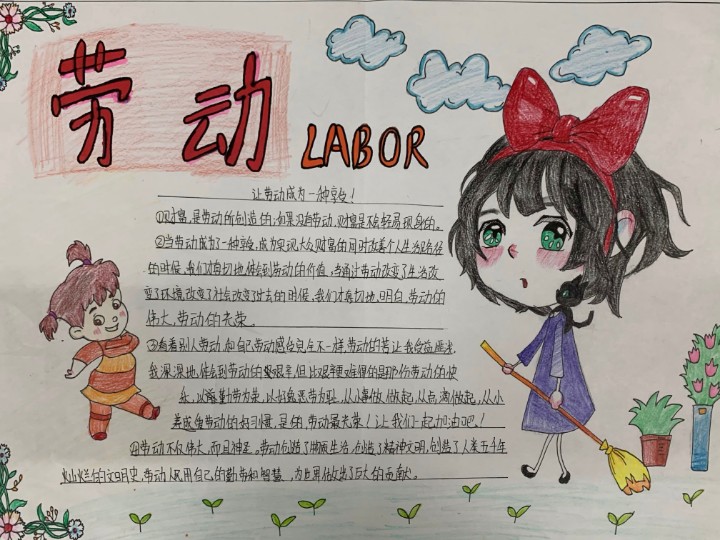 劳动
LABOR
让劳动成为一种享受!
①财富,是劳动所创造的,如果没有劳动,财富是不会轻易现身的。
②当劳动成为了一种享受,成为实现大众财富的同时改善个人生活路径
的时候,我们才真切地体会到劳动的价值,当通过劳动改变了生活改
变了环境改变了社会改变了过去的时候,我们才真切地明白,劳动的
伟大,劳动的光荣。
③看着别人劳动和自己劳动感受完全不一样,劳动的苦让我受益匪浅
我深深地体会到劳动的艰辛,但比艰辛难得的是那份劳动的快
乐,以辛勤劳动为荣,以好逸恶劳为耻,从小事做做起,从点滴做起,从小
养成爱劳动的好习惯,是的,劳动最光荣!让我们一起加油吧!
④劳动不仅伟大,而且神圣。劳动创造了物质生活,创造了精神文明,创造了人类五千年
灿烂的文明史,劳动人民用自己的勤劳和智慧,为世界做出了巨大的贡献。